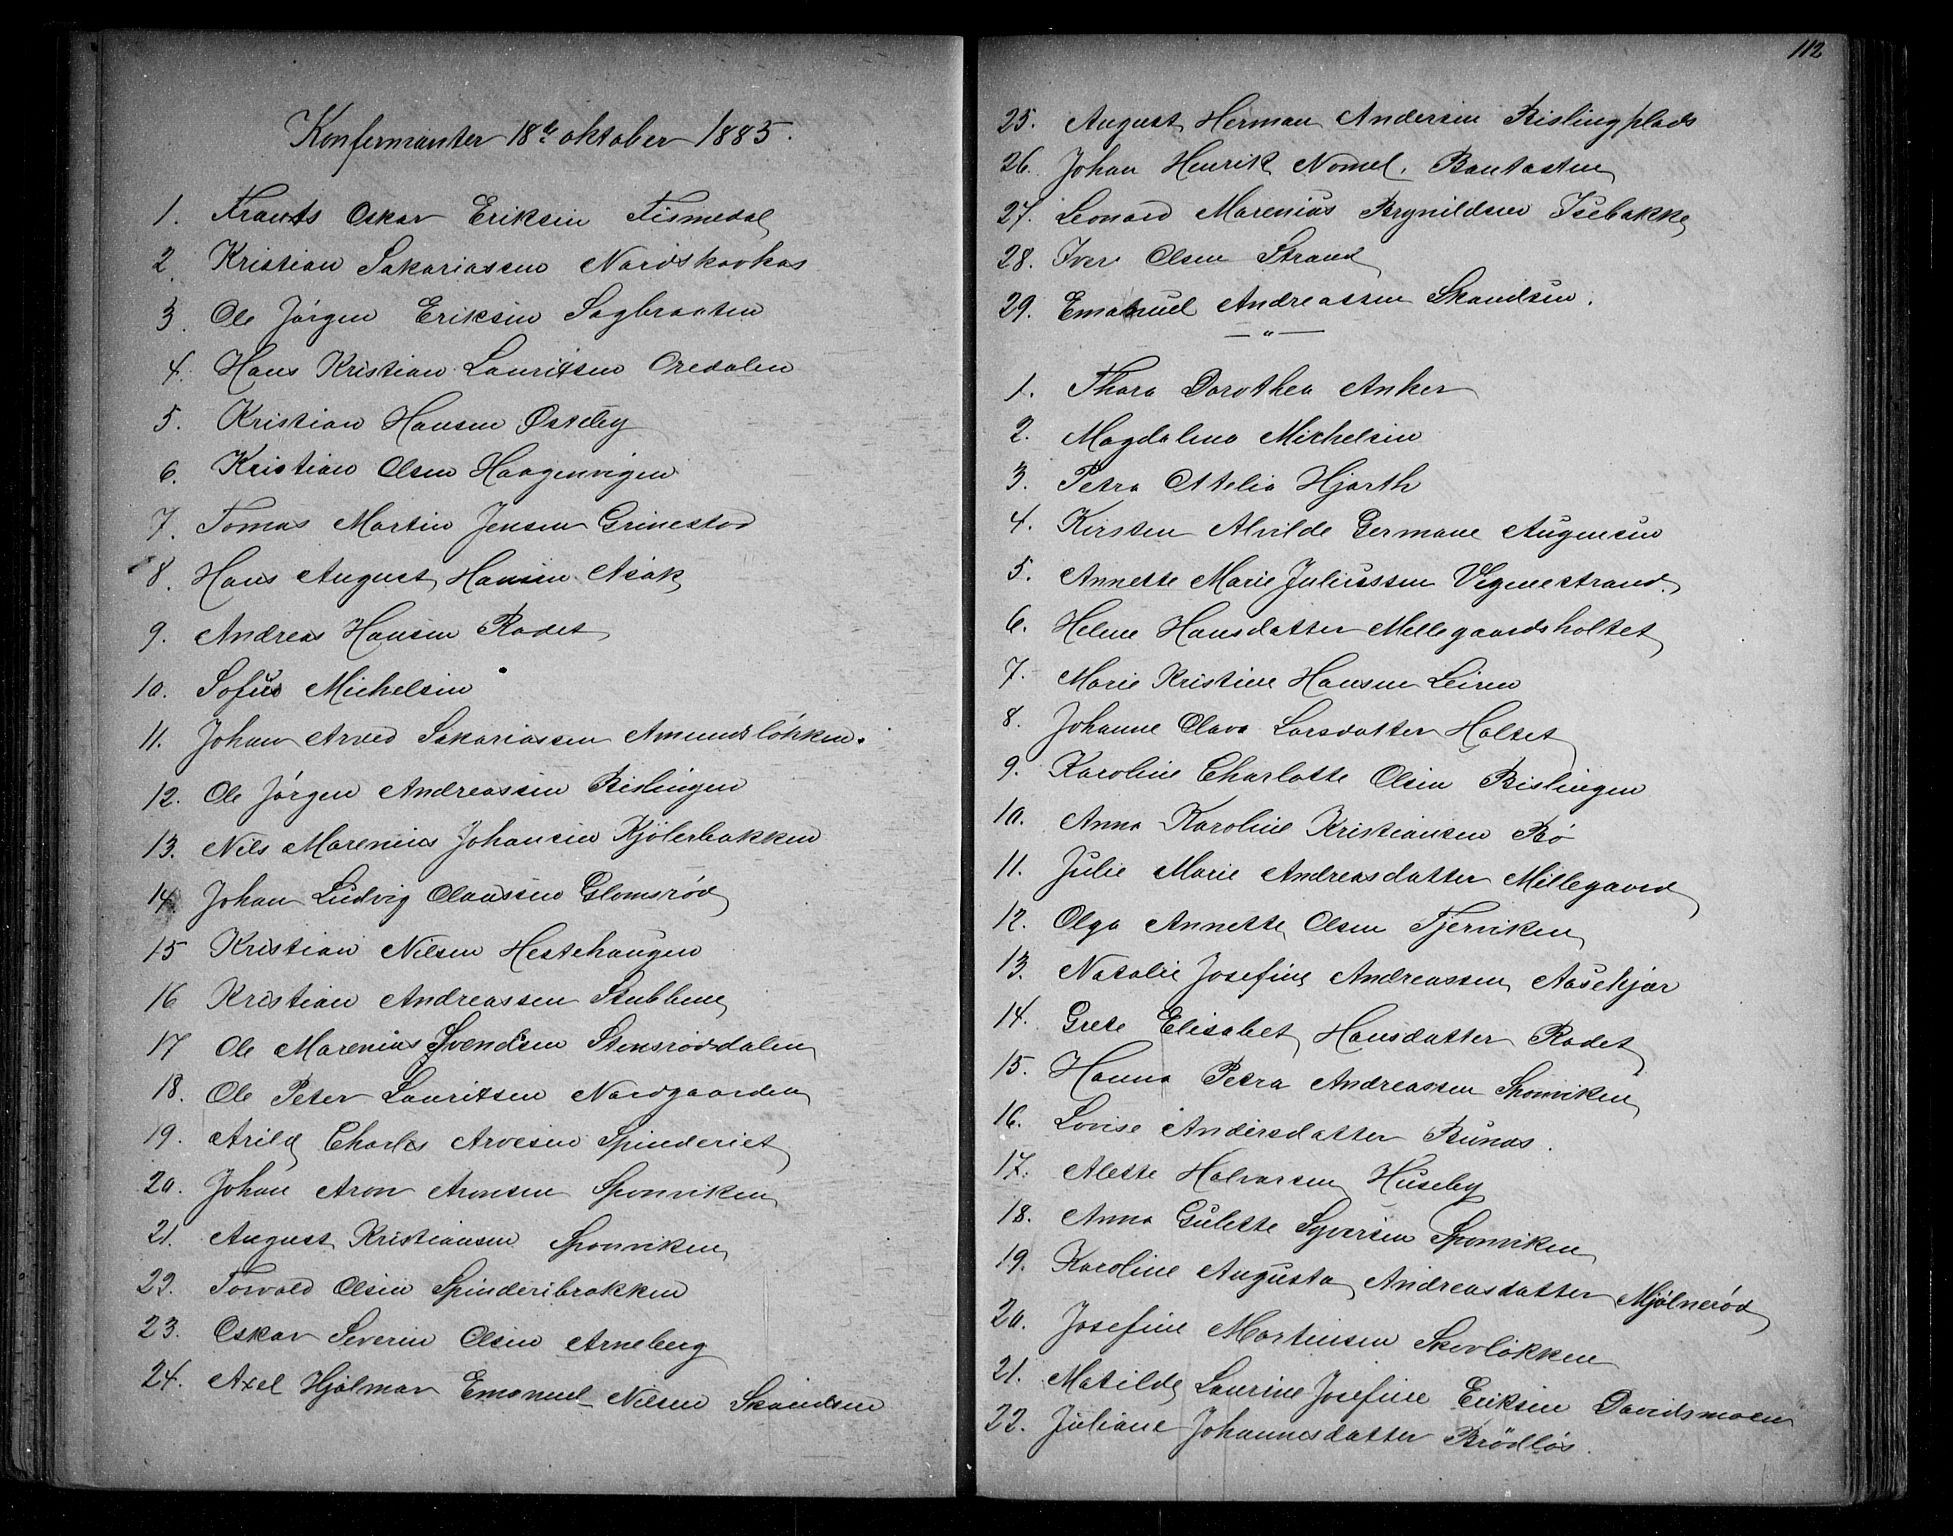 Konfermanter 18de oktober 1885.
1. Frants Oskar Eriksen Tismedal
2. Kristian Sakariassen Nordskovkas
3. Ole Jörgen Eriksen Sagbraaten
4. Hans Kristian Lauritsen Oredalen
5. Kristian Hansen Østeby
6. Kristian Olsen Haagenvigen
7. Tomas Martin Jensen Grinestad
8. Hans August Hansen Asak
9. Andreas Hansen Rodet
10. Sofus Michelsen
11. Johan Arved Sakariassen Amundsløkken.
12. Ole Jörgen Andreassen Rislingen
13. Nils Marenius Johansen Kjølerbakken
14. Johan Ludvig Olaussen Glomsrød
15 Kristian Nilsen Hestehaugen
16 Kristian Andreassen Stubbene
17 Ole Marenius Svendsen Stensrødsdalen
18. Ole Peter Lauritsen Nordgaarden
19. Arild Charles Arvesen Spinderiet
20. Johan Aron Aronsen Sponviken
21. August Kristiansen Sponviken
22. Torvald Olsen Spinderibrakken
23. Oskar Severin Olsen Arneberg
24. Axel Hjalmar Emanuel Nilsen Skandsen
112
25. August Herman Andersen Rislingplads
26. Johan Henrik Nomel. Bautasten
27. Leonard Marenius Brynildsen Isebakke
28. Iver Olsen Strand
29. Emanuel Andreassen Skandsen.
— " —
1. Thora Dorothea Anker
2. Magdalena Michelsen
3. Petra Otelia Hjorth
4. Kirsten Alvilde Germane Augensen
5. Annette Marie Juliussen Vegnestrand.
6. Helene Hansdatter Mellegaardsholtet
7. Marie Kristine Hansen Leiren
8. Johanne Olava Larsdatter Holtet
9. Karoline Charlotte Olsen Rislingen
10. Anna Karoline Kristiansen Bø
11. Julie Marie Andreasdatter Millegaard
12. Olga Annette Olsen Tjerviken
13. Natalie Josefine Andreassen Aasekjær
14. Grete Elisabet Hansdatter Rodet
15. Hanna Petra Andreassen Sponviken
16. Lovise Andersdatter Bunas.
17. Alette Halvorsen Huseby
18. Anna Gulette Syversen Sponviken
19. Karoline Augusta Andreasdatter Mjølnerød
20. Josefine Martinsen Skovløkken
21. Matilde Laurine Josefine Eriksen Davidsmoen
22. Juliane Johannesdatter Brødløs.